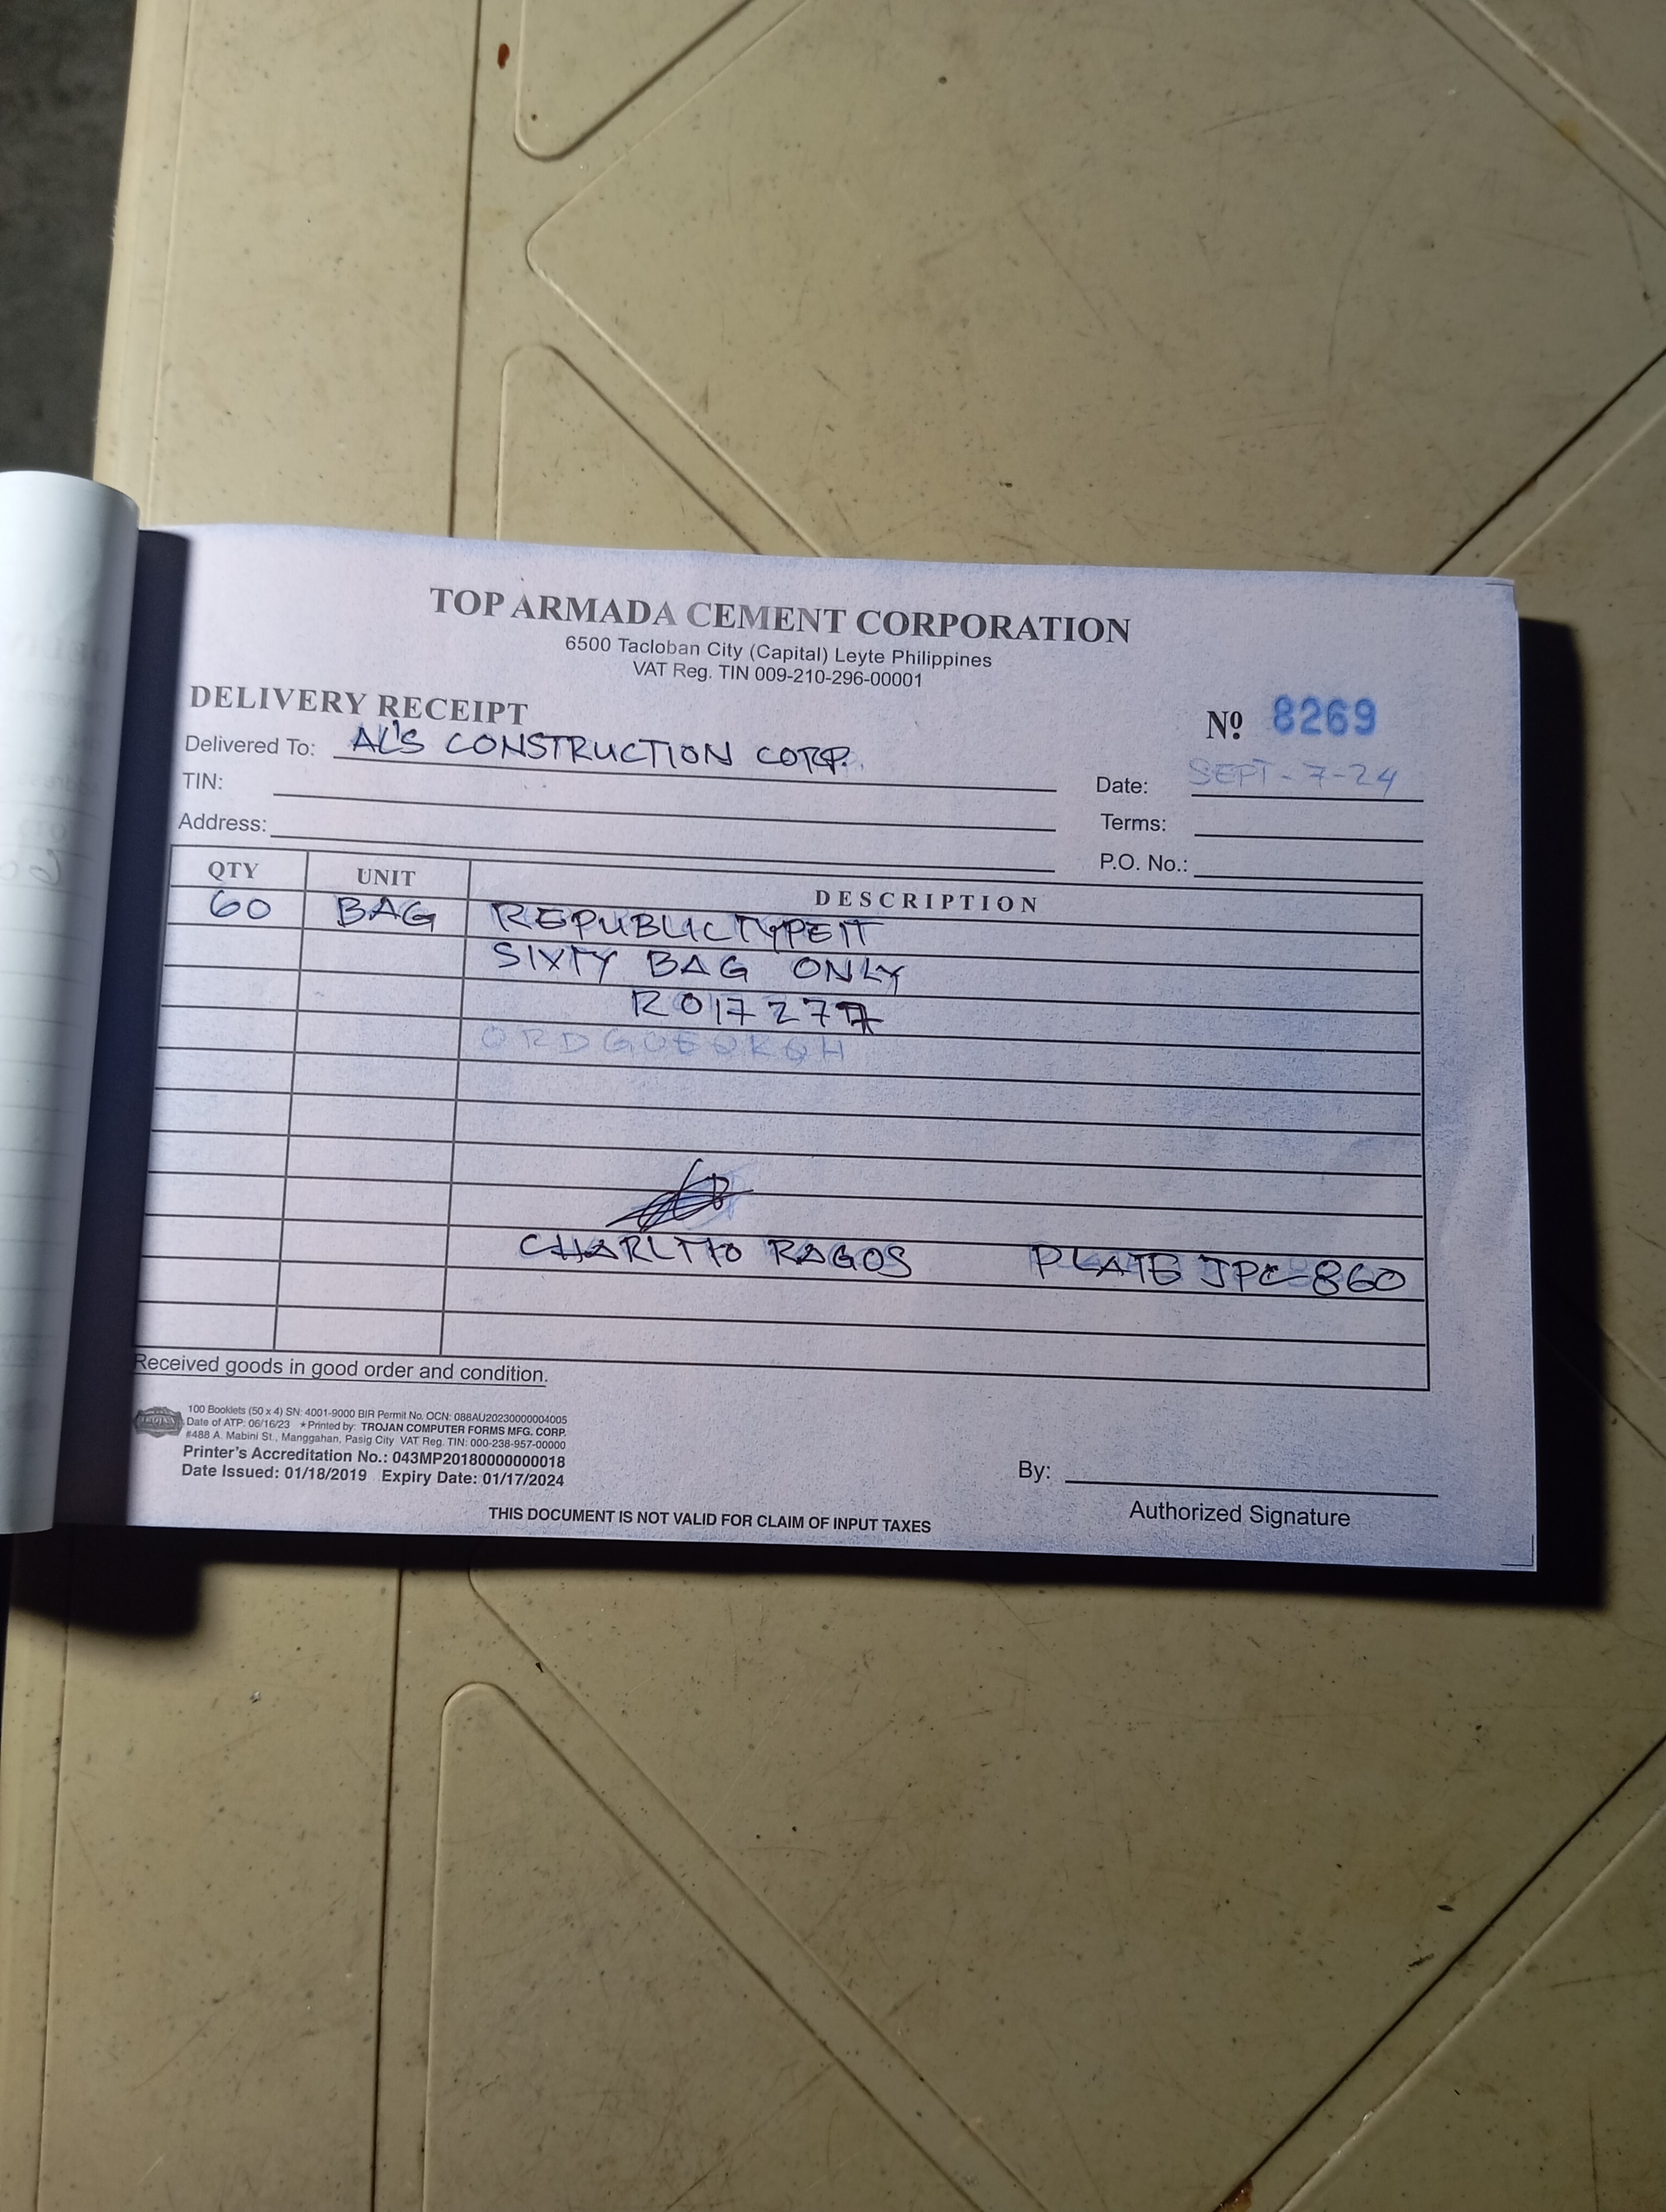 TOP ARMADA CEMENT CORPORATION
6500 Tacloban City (Capital) Leyte Philippines
VAT Reg. TIN 009-210-296-00001
DELIVERY RECEIPT
Nº 8269
Delivered To: AL'S CONSTRUCTION CORP.
Date: SEPT-7-24
TIN:
Terms:
Address:
P.O. No.:
QTY UNIT DESCRIPTION
60 BAG REPUBLIC TYPE 1T
SIXTY BAG ONLY
R017277
CHARLITO RAGOS PLATE JPC-860
Received goods in good order and condition.
100 Booklets (50 x 4) SN: 4001-9000 BIR Permit No. OCN: 088AU20230000004005
Date of ATP: 06/16/23 ★Printed by: TROJAN COMPUTER FORMS MFG. CORP.
#488 A. Mabini St., Manggahan, Pasig City VAT Reg. TIN: 000-238-957-00000
Printer's Accreditation No.: 043MP20180000000018
Date Issued: 01/18/2019 Expiry Date: 01/17/2024
By:
Authorized Signature
THIS DOCUMENT IS NOT VALID FOR CLAIM OF INPUT TAXES